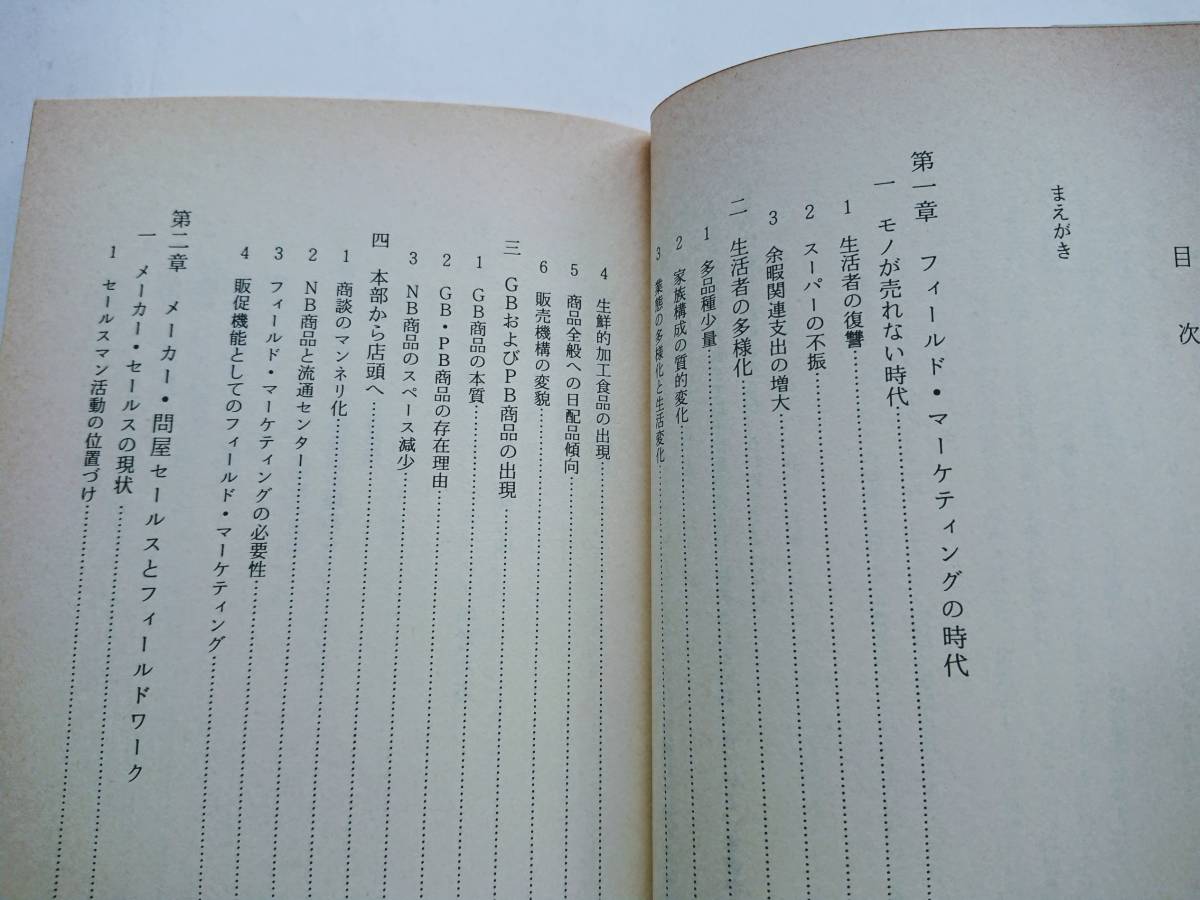 目次
まえがき
第一章 フィールド・マーケティングの時代
一 モノが売れない時代
1 生活者の復讐
2 スーパーの不振
3 余暇関連支出の増大
二 生活者の多様化
1 多品種少量
2 家族構成の質的変化
3 業態の多様化と生活変化
4 生鮮的加工食品の出現
5 商品全般への日配品傾向
6 販売機構の変貌
三 GBおよびPB商品の出現
1 GB商品の本質
2 GB・PB商品の存在理由
3 NB商品のスペース減少
四 本部から店頭へ
1 商談のマンネリ化
2 NB商品と流通センター
3 フィールド・マーケティングの必要性
4 販促機能としてのフィールド・マーケティング
第二章 メーカー・問屋セールスとフィールドワーク
一 メーカー・セールスの現状
1 セールスマン活動の位置づけ